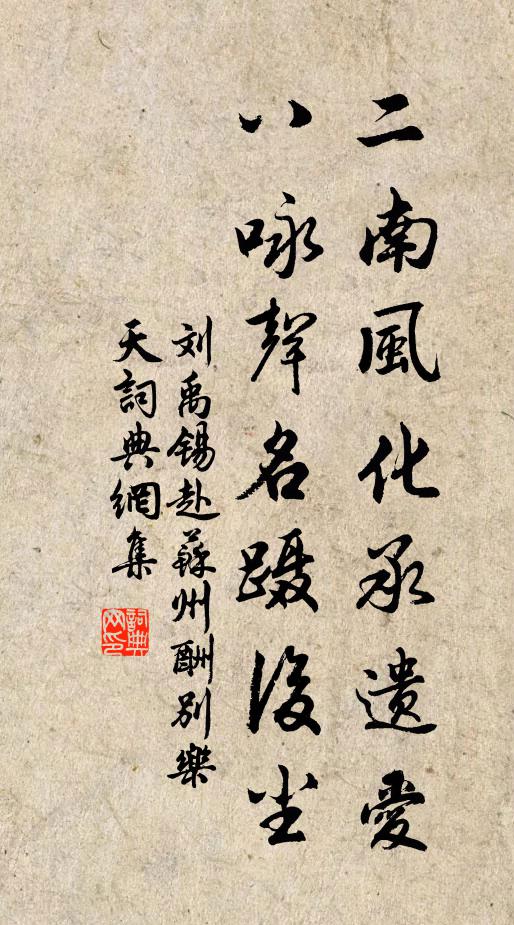 二南風化承遺愛
八咏聲名躡後塵
刘禹锡赴蘇州酬别樂
天詞典網集
詞典
网印